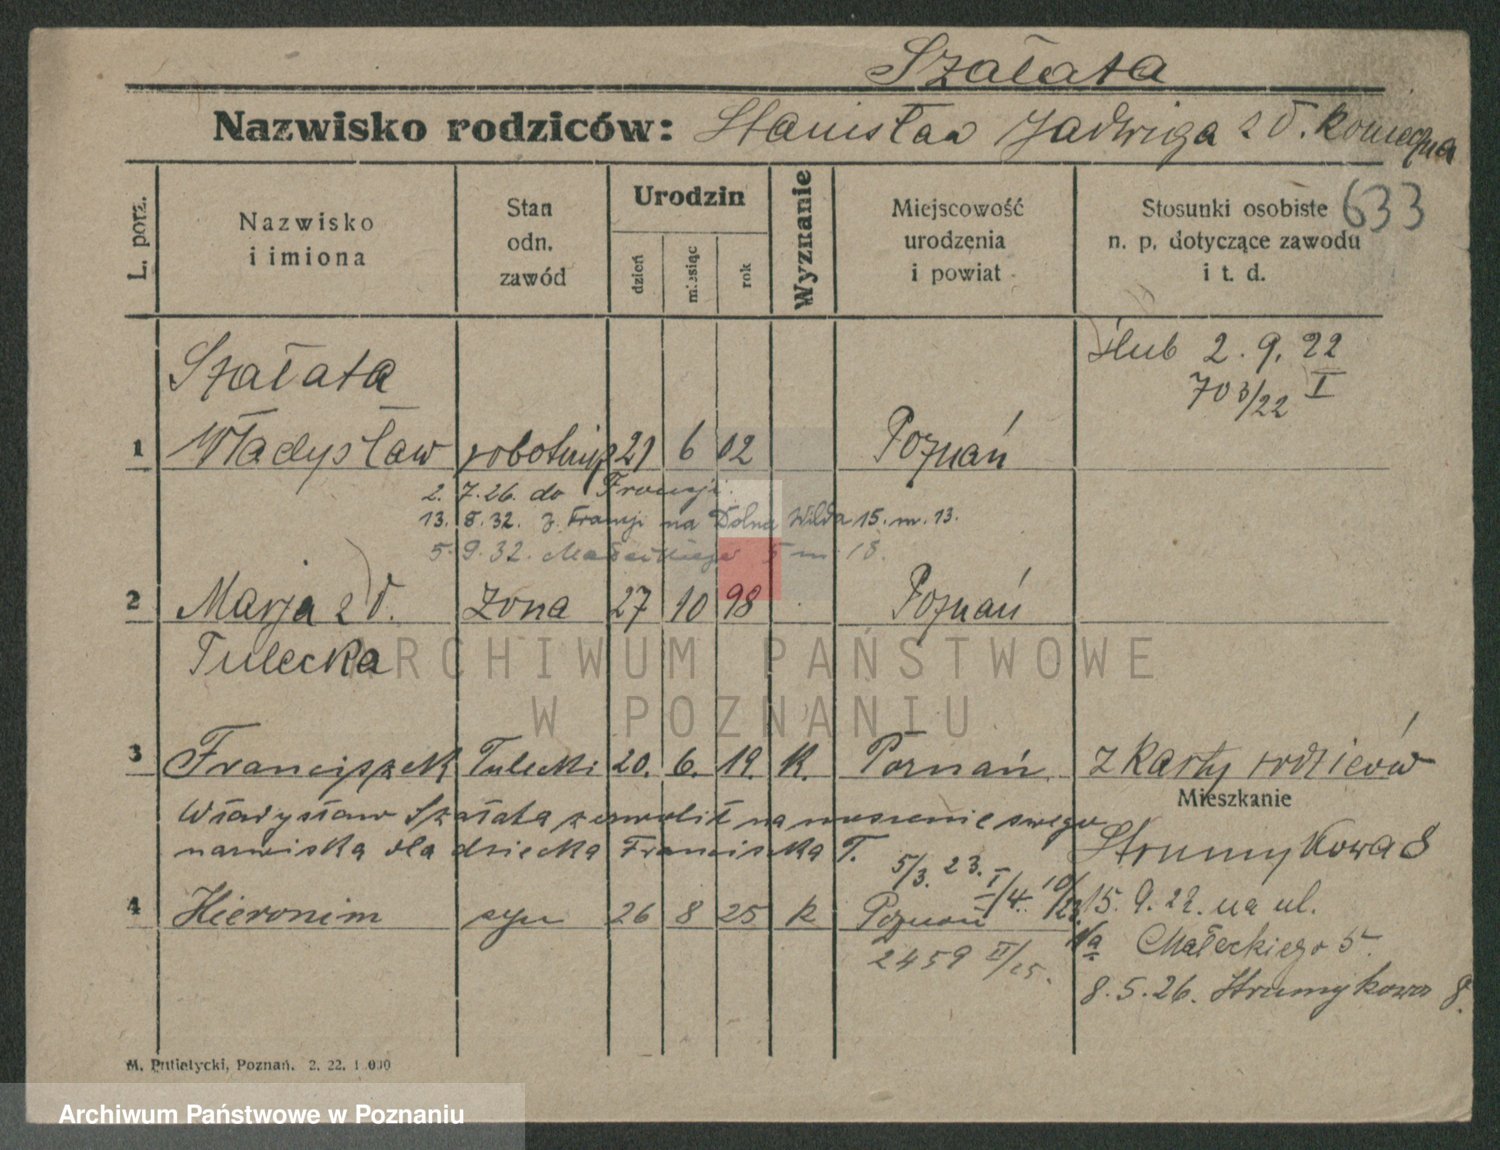 Szałata
Nazwisko rodziców: Stanisław Jadwiga z d. Konieczna
633
L. porz.
Nazwisko i imiona
Stan odn. zawód
Urodzin
dzień miesiąc rok
Wyznanie
Miejscowość urodzenia i powiat
Stosunki osobiste n. p. dotyczące zawodu i t. d.
Szałata
ślub 2. 9. 22
703/22 I
1 Władysław robotnik 21 6 02 Poznań
2. 7. 26. do Francji.
13. 8. 32. z Francji na Dolna Wilda 15. m. 13.
5. 9. 32. Małeckiego 5 m. 18.
2 Marja z d. żona 27 10 98 Poznań
Tulecka
ARCHIWUM PAŃSTWOWE
W POZNANIU
3 Franciszek Tulecki 20. 6. 19. K. Poznań z karty rodziców
Mieszkanie
Władysław Szałata zezwolił na noszenie swego
nazwiska dla dziecka Franciszka T.
Strumykowa 8
5/3. 23. I/4. 10/22.
15. 9. 22. na ul.
4 Hieronim syn 26 8 25 k Poznań
Małeckiego 5
2459 II/25.
8. 5. 26. Strumykowa 8.
M. Putiatycki, Poznań. 2. 22.
Archiwum Państwowe w Poznaniu